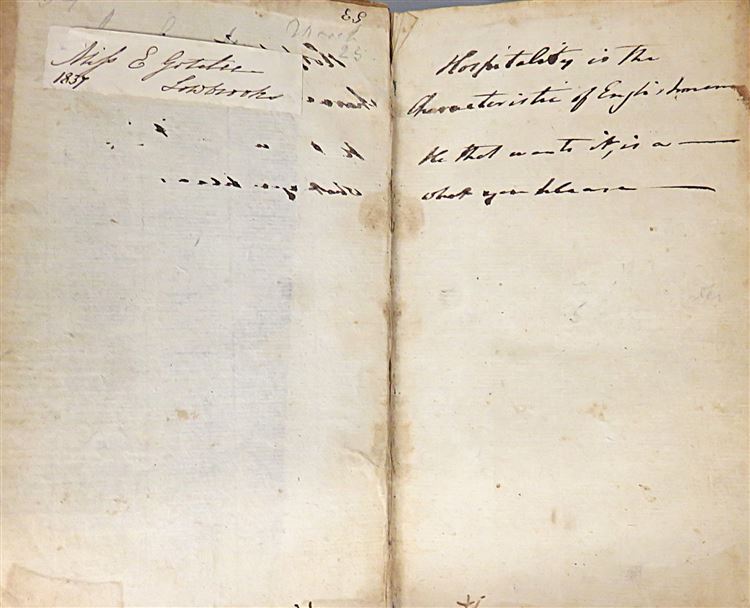 March
25
Miss E
1837
Hospitality is the
Characteristic of Englishmen
He that wants it, is a —
what you please —